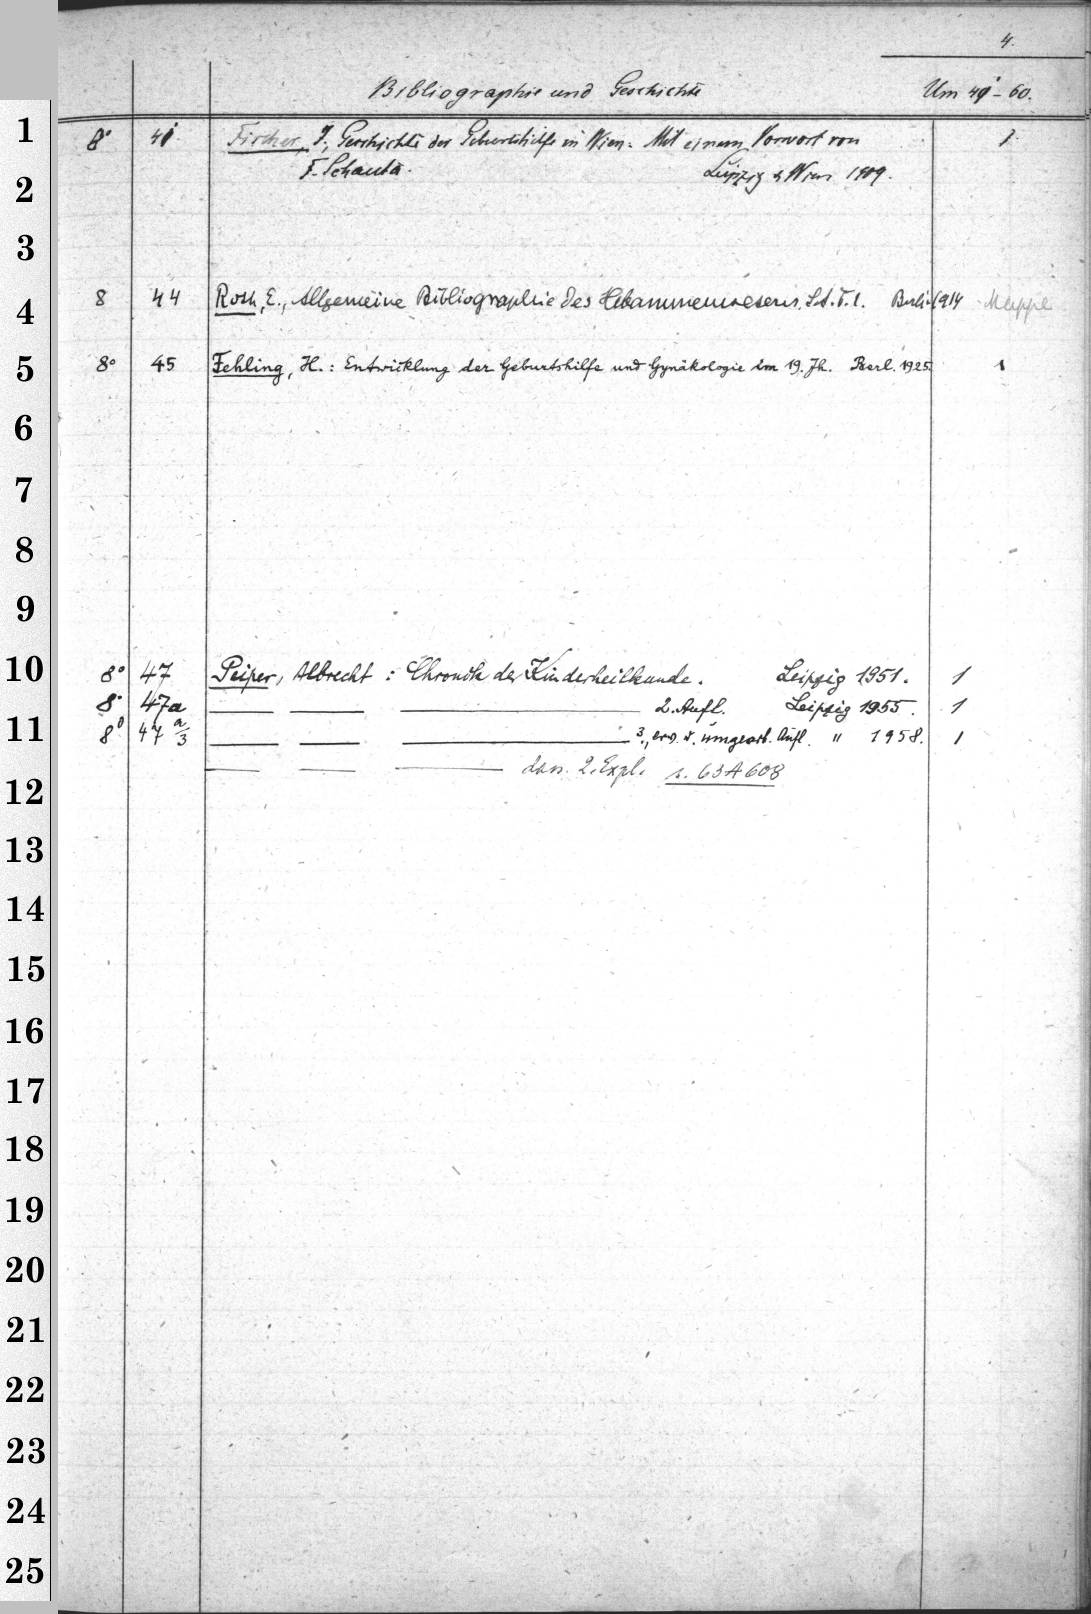 4.
Bibliographie und Geschichte Um 41-60.
1 8° 41 Fischer, I., Geschichte der Geburtshilfe in Wien. Mit einem Vorwort von 1
2 F. Schauta. Leipzig & Wien 1909.
3
4 8 44 Roth, E., Allgemeine Bibliographie des Hebammenwesens. S.A. T. 1. Berlin 1914 Mappe
5 8° 45 Fehling, H.: Entwicklung der Geburtshilfe und Gynäkologie im 19. Jh. Berl. 1925 1
6
7
8
9
10 8° 47 Peiper, Albrecht: Chronik der Kinderheilkunde. Leipzig 1951. 1
8° 47a — — — 2. Aufl. Leipzig 1955. 1
11 8° 47 a/3 — — — 3., erw. u. umgearb. Aufl. " 1958. 1
— — — dass. 2. Expl. s. 63A608
12
13
14
15
16
17
18
19
20
21
22
23
24
25